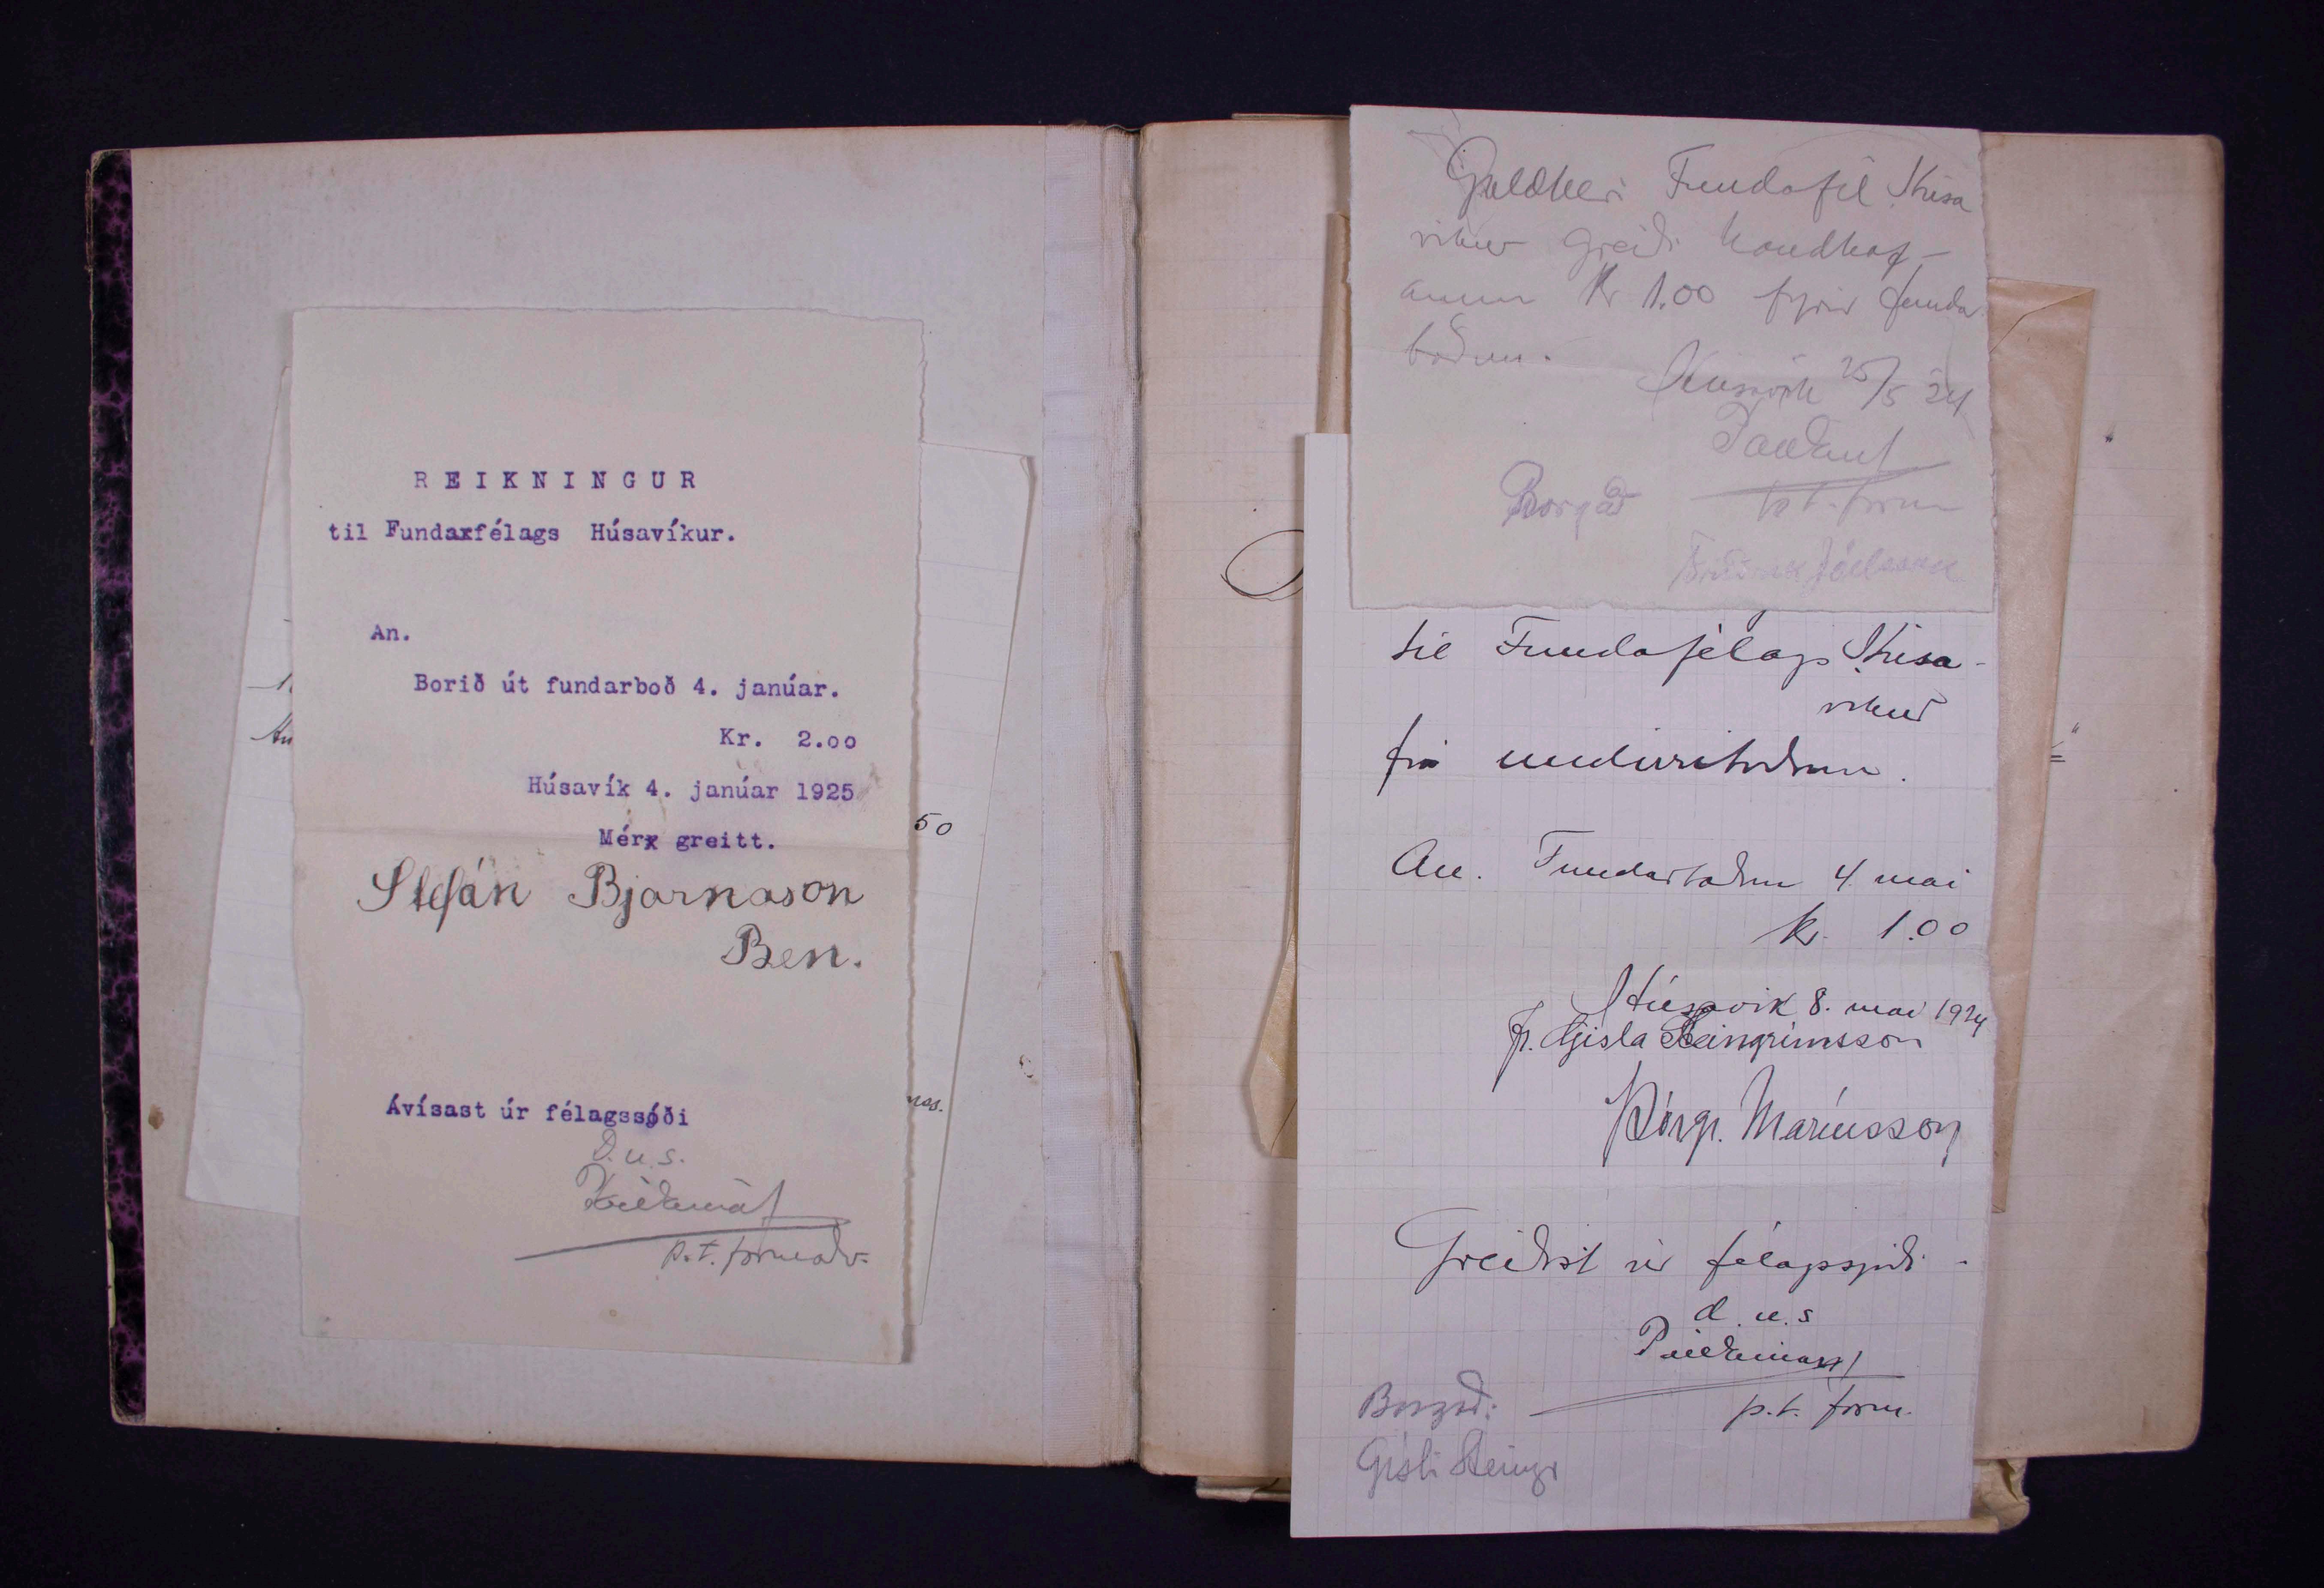 REIKNINGUR
til Fundaxfélags Húsavíkur.
An.
Borið út fundarboð 4. janúar.
Kr. 2.00
Húsavík 4. janúar 1925
Mérx greitt.
Stefán Bjarnason
Ben.
Ávísast úr félagssjóði
D.u.s.
p.t. formaðr.
50
Gjaldkeri Fundafél Húsa
víkur greiði handhaf-
anum Kr 1.00 fyrir funda
boðun.
Húsavík 25/5 24
p.t. form
Borgað
til Fundafélags Húsa-
víkur
frá undirrituðum.
An. Fundarboðun 4. maí
kr. 1.00
Húsavík 8. maí 1924
fr. Gísla Steingrímsson
Þórgr. Maríusson
Greiðist úr félagssjóði.
d.u.s
p.t. form.
Borgað:
Gísli Steingr